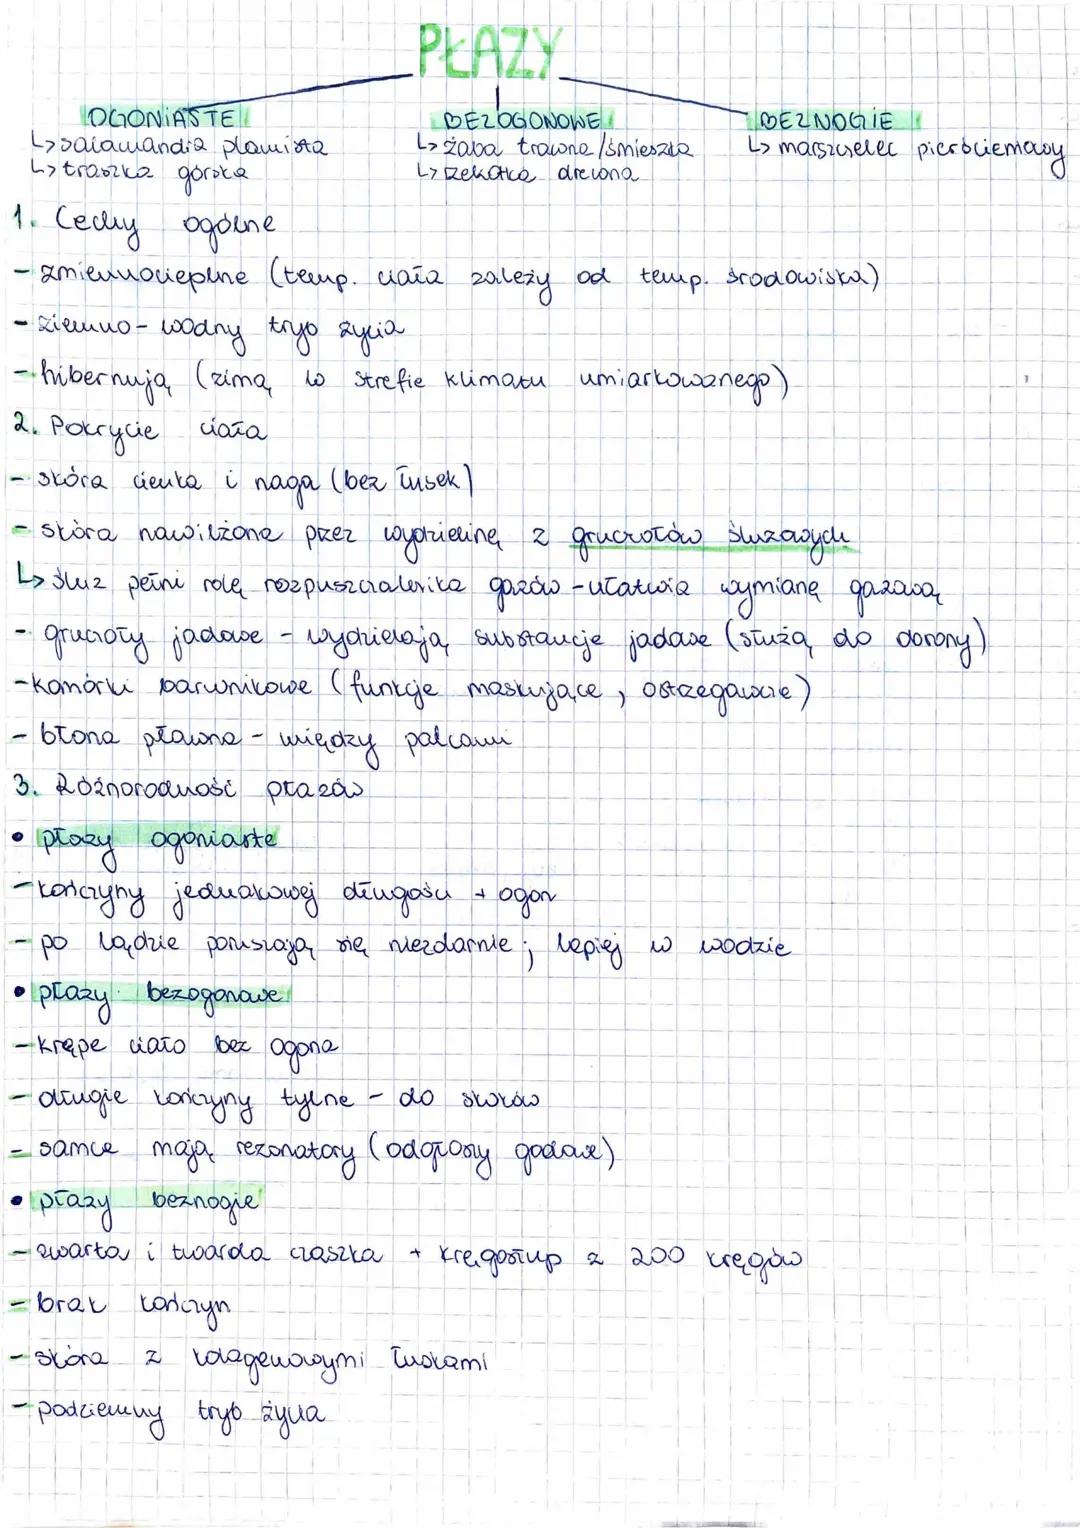 PŁAZY
OGONIASTE BEZOGONOWE BEZNOGIE
↳ salamandra plamista ↳ żaba trawna/śmieszka ↳ marszczelec pierścieniowy
↳ traszka górska ↳ rzekotka drewna
1. Cechy ogólne
- zmiennocieplne (temp. ciała zależy od temp. środowiska)
- ziemno-wodny tryb życia
- hibernują (zimą w strefie klimatu umiarkowanego)
2. Pokrycie ciała
- skóra cienka i naga (bez łusek)
- skóra nawilżona przez wydzielinę z gruczołów śluzowych
↳ śluz pełni rolę rozpuszczalnika gazów - ułatwia wymianę gazową
- gruczoły jadowe - wydzielają substancje jadowe (służą do obrony)
- komórki barwnikowe (funkcje maskujące, ostrzegawcze)
- błona pławna - między palcami
3. Różnorodność płazów
• płazy ogoniaste
- kończyny jednakowej długości + ogon
- po lądzie poruszają się niezdarnie; lepiej w wodzie
• płazy bezogonowe
- krępe ciało bez ogona
- długie kończyny tylne - do skoków
- samce mają rezonatory (odgłosy godowe)
• płazy beznogie
- zwarta i twarda czaszka + kręgosłup z 200 kręgów
- brak kończyn
- skóra z kolagenowymi łuskami
- podziemny tryb życia